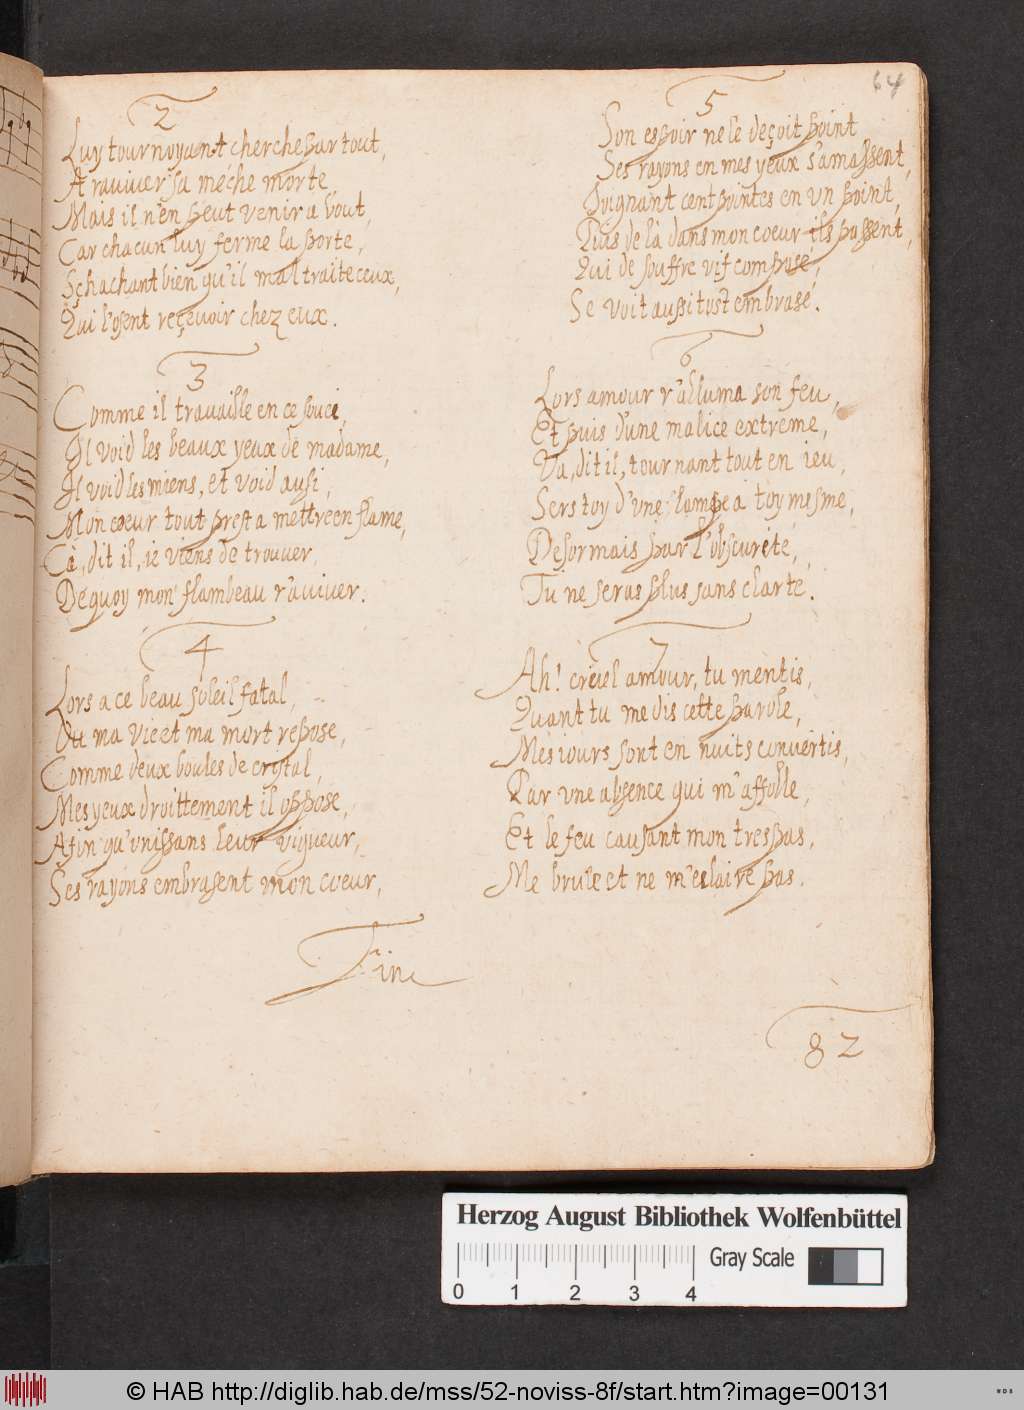 64
2
Luy tournoyant cherche par tout,
A raviver sa meche morte,
Mais il n'en peut venir a bout,
Car chacun luy ferme la porte,
Sçhachant bien qu'il mal traite ceux,
Qui l'osent reçevoir chez eux.
3
Comme il travaille en ce souci,
Il void les beaux yeux de madame,
Il void les miens, et void ausi,
Mon cœur tout prest a mettre en flame,
Ca, dit il, ie viens de trouver,
Dequoy mon flambeau r'aviver.
4
Lors a ce beau soleil fatal,
Ou ma vie et ma mort repose,
Comme deux boules de crystal,
Mes yeux droittement il oppose,
Afin qu'vnissans leur vigueur,
Ses rayons embrasent mon coeur,
5
Son espoir ne le deçoit point
Ses rayons en mes yeux s'amassent,
Joignant cent pointes en vn point,
Puis de là dans mon coeur ils passent,
Qui de souffre vif composé,
Se voit aussi tost embrasé.
6
Lors amour r'alluma son feu,
Et puis d'une malice extreme,
Va, dit il, tournant tout en ieu,
Sers toy d'vne lampe a toy mesme,
Desormais par l'obscurite,
Tu ne seras plus sans clarte.
7
Ah! cruel amour, tu mentis,
Quant tu me dis cette parole,
Mes iours sont en nuits convertis,
Par vne absence qui m'affolle,
Et le feu causant mon trespas,
Me brule et ne m'eslaire pas.
Fine
82
Herzog August Bibliothek Wolfenbüttel
Gray Scale
0 1 2 3 4
© HAB http://diglib.hab.de/mss/52-noviss-8f/start.htm?image=00131